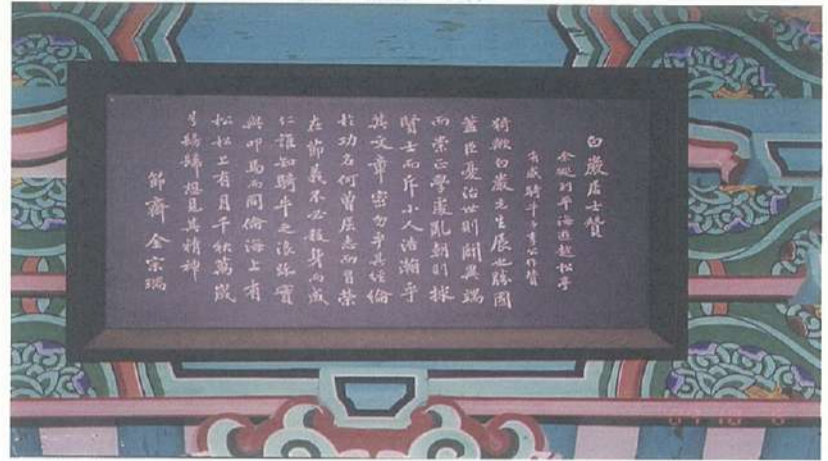 白巖居士贊
余巡到平海遊越松亭
有感騎牛子李公作贊
猗歟白巖先生展也勝國
藎臣憂治世則闢異端
而崇正學處亂朝則採
賢士而斥小人浩瀚乎
其文章密勿乎其經倫
於功名何曾屈志而冒榮
在節義不必殺身而成
仁誰知騎牛之浪跡實
與叩馬而同倫海上有
松松上有月千秋萬歲
兮髣髴想見其精神
節齋 金宗瑞